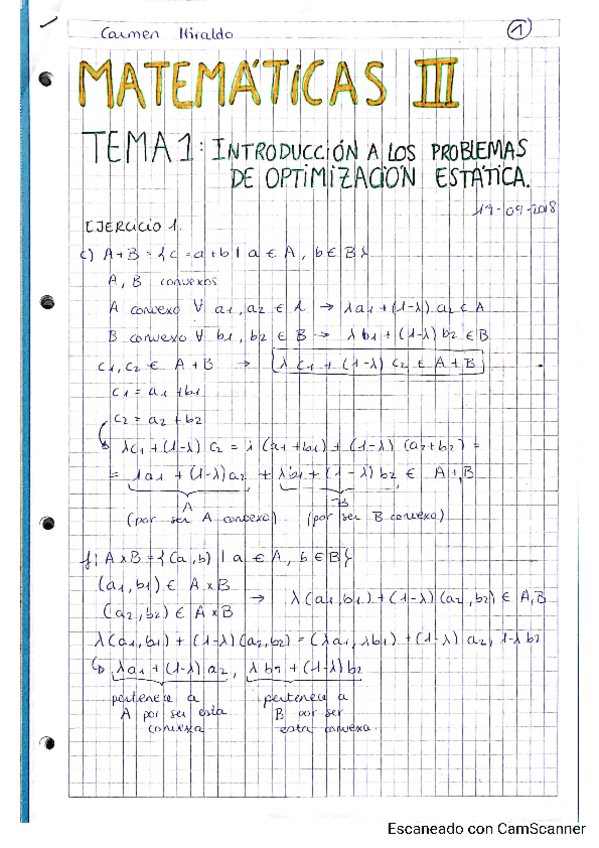 Carmen Hiraldo
1
MATEMÁTICAS III
TEMA 1: INTRODUCCIÓN A LOS PROBLEMAS
DE OPTIMIZACIÓN ESTÁTICA.
19-09-2018
EJERCICIO 1.
c) A+B = { c = a+b | a ∈ A, b ∈ B}
A, B convexos
A convexo ∀ a1, a2 ∈ A → λa1 + (1-λ) a2 ∈ A
B convexo ∀ b1, b2 ∈ B → λb1 + (1-λ) b2 ∈ B
c1, c2 ∈ A+B → λ c1 + (1-λ) c2 ∈ A+B
c1 = a1 + b1
c2 = a2 + b2
λc1 + (1-λ) c2 = λ (a1+b1) + (1-λ) (a2+b2) =
= λa1 + (1-λ)a2 + λb1 + (1-λ) b2 ∈ A+B
A B
(por ser A convexo) (por ser B convexo)
f; A×B = { (a,b) | a ∈ A, b ∈ B}
(a1,b1) ∈ A×B
→ λ(a1,b1) + (1-λ) (a2,b2) ∈ A,B
(a2,b2) ∈ A×B
λ(a1,b1) + (1-λ)(a2,b2) = (λa1, λb1) + (1-λ) a2, 1-λ b2
↳ λa1 + (1-λ) a2, λb1 + (1-λ) b2
pertenece a pertenece a
A por ser esta B por ser
convexa esta convexa.
Escaneado con CamScanner